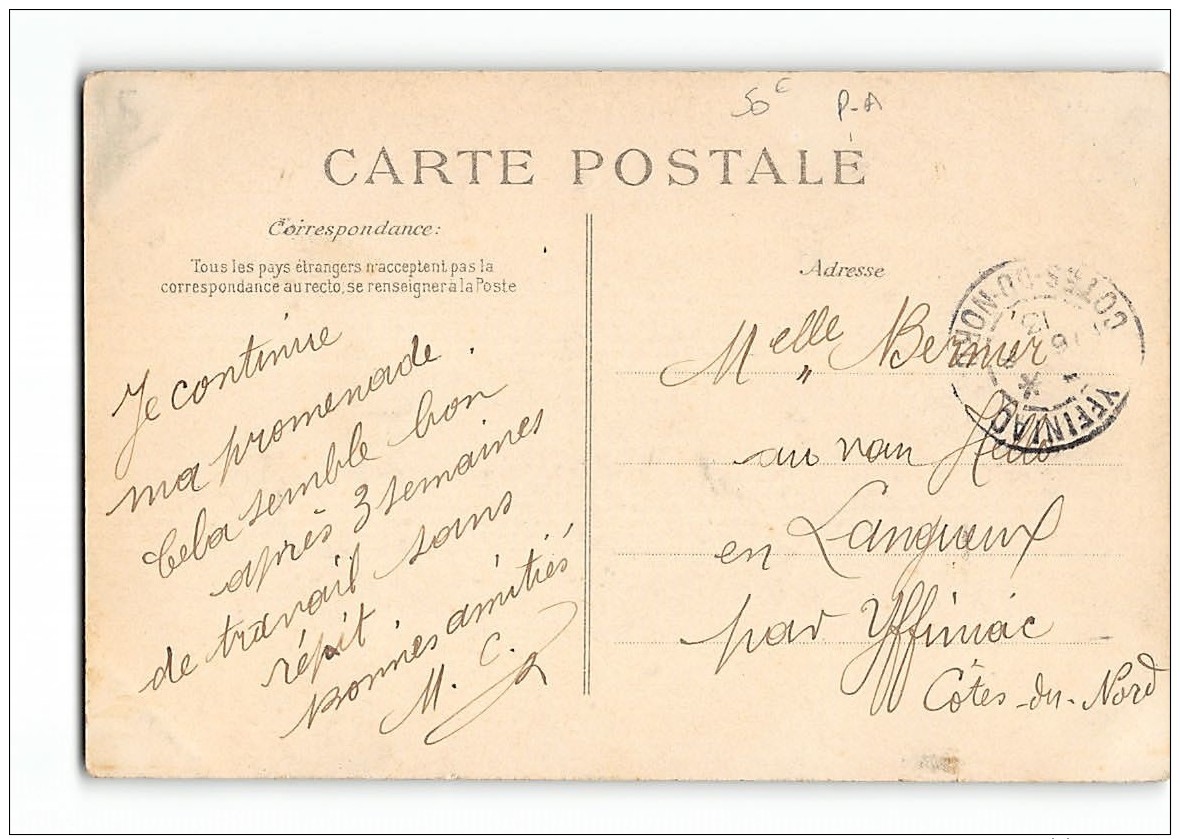 50c P-A
CARTE POSTALE
Correspondance:
Tous les pays étrangers n'acceptent pas la
correspondance au recto, se renseigner à la Poste
Je continue
ma promenade.
Cela semble bon
après 3 semaines
de travail sans
répit.
Bonnes amitiés
M. C.
Adresse
Melle Bernier
au van
en Langueux
par Yffiniac
Côtes-du-Nord
COTES-DU-NORD
YFFINIAC